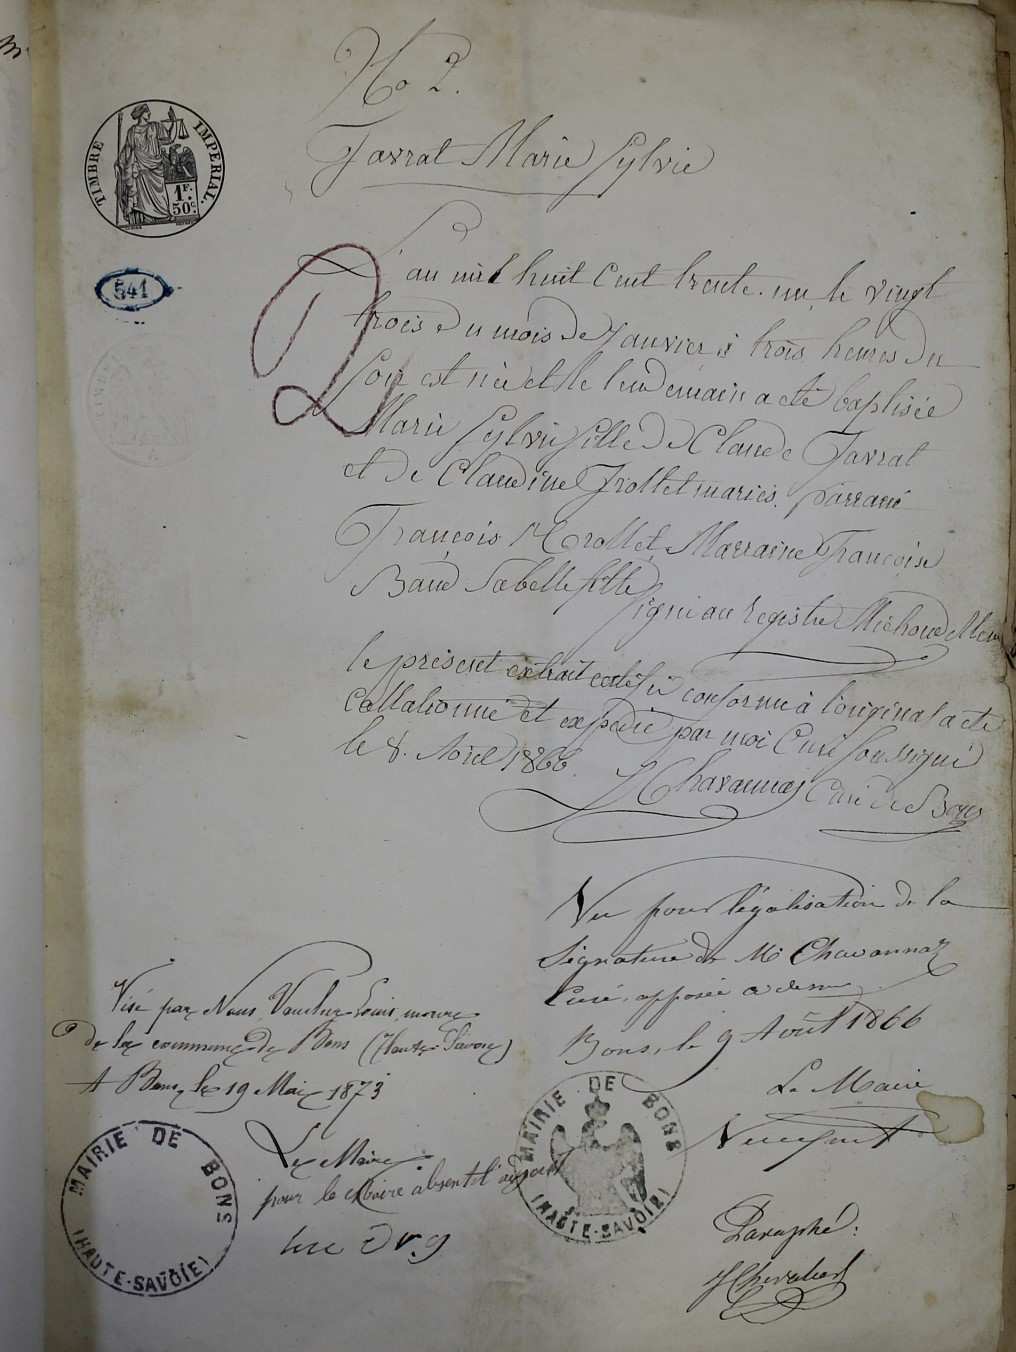 No 2.
TIMBRE IMPERIAL.
1F. 50c.
Favrat Marie Sylvie
541
L'an mil huit cent trente-un le vingt
trois du mois de Janvier à trois heures du
soir est née et le lendemain a été baptisée
Marie Sylvie fille de Claude Favrat
et de Claudine Trollet mariés. parrain
François Trollet, Marraine Françoise
Baud sa belle fille
signé au registre Michoud
le présent extrait certifié conforme à l'original a été
collationné et expédié par moi Curé soussigné
le 8. Août 1866
Chavannaz Curé de Bons
Vu pour légalisation de la
signature de Mr Chavannaz
Curé, apposée ci dessus
Bons, le 9 Août 1866
Le Maire
MAIRIE DE BONS
(HAUTE-SAVOIE)
Paraphé:
Visé par Nous, Louis, maire
de la commune de Bons (Haute Savoie)
A Bons, le 19 Mai 1873
Le Maire
pour le Maire absent l'adjoint
MAIRIE DE BONS
(HAUTE-SAVOIE)